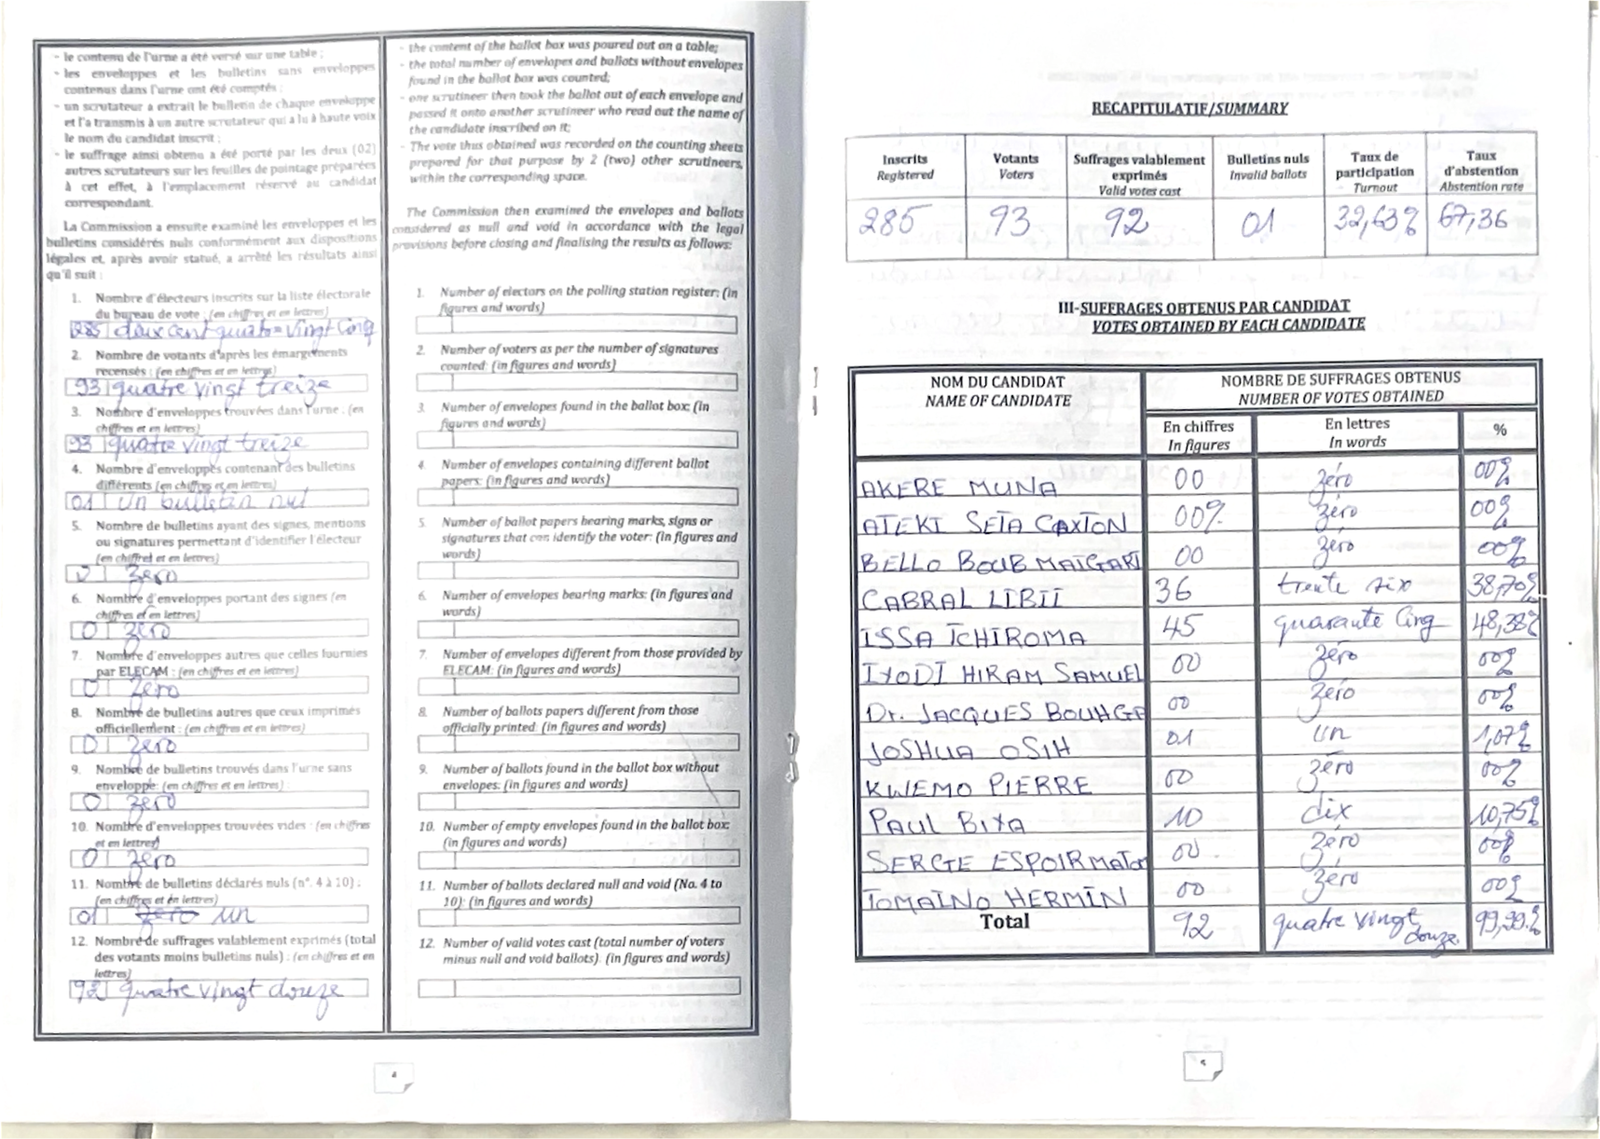 - le contenu de l'urne a été versé sur une table ;
- les enveloppes et les bulletins sans enveloppes
contenus dans l'urne ont été comptés ;
- un scrutateur a extrait le bulletin de chaque enveloppe
et l'a transmis à un autre scrutateur qui a lu à haute voix
le nom du candidat inscrit ;
- le suffrage ainsi obtenu a été porté par les deux (02)
autres scrutateurs sur les feuilles de pointage préparées
à cet effet, à l'emplacement réservé au candidat
correspondant.
La Commission a ensuite examiné les enveloppes et les
bulletins considérés nuls conformément aux dispositions
légales et, après avoir statué, a arrêté les résultats ainsi
qu'il suit :
1. Nombre d'électeurs inscrits sur la liste électorale
du bureau de vote : (en chiffres et en lettres)
285 deux cent quatre-vingt cinq
2. Nombre de votants d'après les émargements
recensés : (en chiffres et en lettres)
93 quatre vingt treize
3. Nombre d'enveloppes trouvées dans l'urne : (en
chiffres et en lettres)
93 quatre vingt treize
4. Nombre d'enveloppes contenant des bulletins
différents (en chiffres et en lettres)
01 un bulletin nul
5. Nombre de bulletins ayant des signes, mentions
ou signatures permettant d'identifier l'électeur
(en chiffres et en lettres)
0 zéro
6. Nombre d'enveloppes portant des signes (en
chiffres et en lettres)
0 zéro
7. Nombre d'enveloppes autres que celles fournies
par ELECAM : (en chiffres et en lettres)
0 zéro
8. Nombre de bulletins autres que ceux imprimés
officiellement : (en chiffres et en lettres)
0 zéro
9. Nombre de bulletins trouvés dans l'urne sans
enveloppe: (en chiffres et en lettres) :
0 zéro
10. Nombre d'enveloppes trouvées vides : (en chiffres
et en lettres)
0 zéro
11. Nombre de bulletins déclarés nuls (n°. 4 à 10) :
(en chiffres et en lettres)
01 zéro un
12. Nombre de suffrages valablement exprimés (total
des votants moins bulletins nuls) : (en chiffres et en
lettres)
92 quatre vingt douze
- the content of the ballot box was poured out on a table;
- the total number of envelopes and ballots without envelopes
found in the ballot box was counted;
- one scrutineer then took the ballot out of each envelope and
passed it onto another scrutineer who read out the name of
the candidate inscribed on it;
- The vote thus obtained was recorded on the counting sheets
prepared for that purpose by 2 (two) other scrutineers,
within the corresponding space.
The Commission then examined the envelopes and ballots
considered as null and void in accordance with the legal
provisions before closing and finalising the results as follows:
1. Number of electors on the polling station register: (in
figures and words)
2. Number of voters as per the number of signatures
counted: (in figures and words)
3. Number of envelopes found in the ballot box: (in
figures and words)
4. Number of envelopes containing different ballot
papers: (in figures and words)
5. Number of ballot papers bearing marks, signs or
signatures that can identify the voter: (in figures and
words)
6. Number of envelopes bearing marks: (in figures and
words)
7. Number of envelopes different from those provided by
ELECAM: (in figures and words)
8. Number of ballots papers different from those
officially printed: (in figures and words)
9. Number of ballots found in the ballot box without
envelopes: (in figures and words)
10. Number of empty envelopes found in the ballot box:
(in figures and words)
11. Number of ballots declared null and void (No. 4 to
10): (in figures and words)
12. Number of valid votes cast (total number of voters
minus null and void ballots). (in figures and words)
4
RECAPITULATIF/SUMMARY
Inscrits Registered | Votants Voters | Suffrages valablement exprimés Valid votes cast | Bulletins nuls Invalid ballots | Taux de participation Turnout | Taux d'abstention Abstention rate
285 93 92 01 32,63% 67,36
III-SUFFRAGES OBTENUS PAR CANDIDAT
VOTES OBTAINED BY EACH CANDIDATE
NOM DU CANDIDAT NOMBRE DE SUFFRAGES OBTENUS
NAME OF CANDIDATE NUMBER OF VOTES OBTAINED
En chiffres En lettres %
In figures In words
AKERE MUNA 00 zéro 00%
ATEKI SETA CAXTON 00% zéro 00%
BELLO BOUB MAIGARI 00 zéro 00%
CABRAL LIBII 36 trente six 38,70%
ISSA TCHIROMA 45 quarante cinq 48,38%
IYODI HIRAM SAMUEL 00 zéro 00%
Dr. JACQUES BOUHGA 00 zéro 00%
JOSHUA OSIH 01 un 1,07%
KWEMO PIERRE 00 zéro 00%
PAUL BIYA 10 dix 10,75%
SERGE ESPOIR MATO 00 zéro 00%
TOMAINO HERMIN 00 zéro 00%
Total 92 quatre vingt douze 99,99%
5